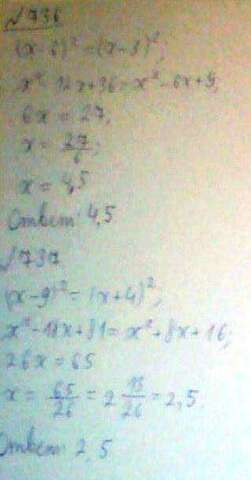 №736
(x-6)² = (x-3)²;
x² - 12x + 36 = x² - 6x + 9;
6x = 27;
x = 27/6;
x = 4,5
Ответ: 4,5
№737
(x-9)² = (x+4)²;
x² - 18x + 81 = x² + 8x + 16;
26x = 65
x = 65/26 = 2 13/26 = 2,5.
Ответ: 2,5